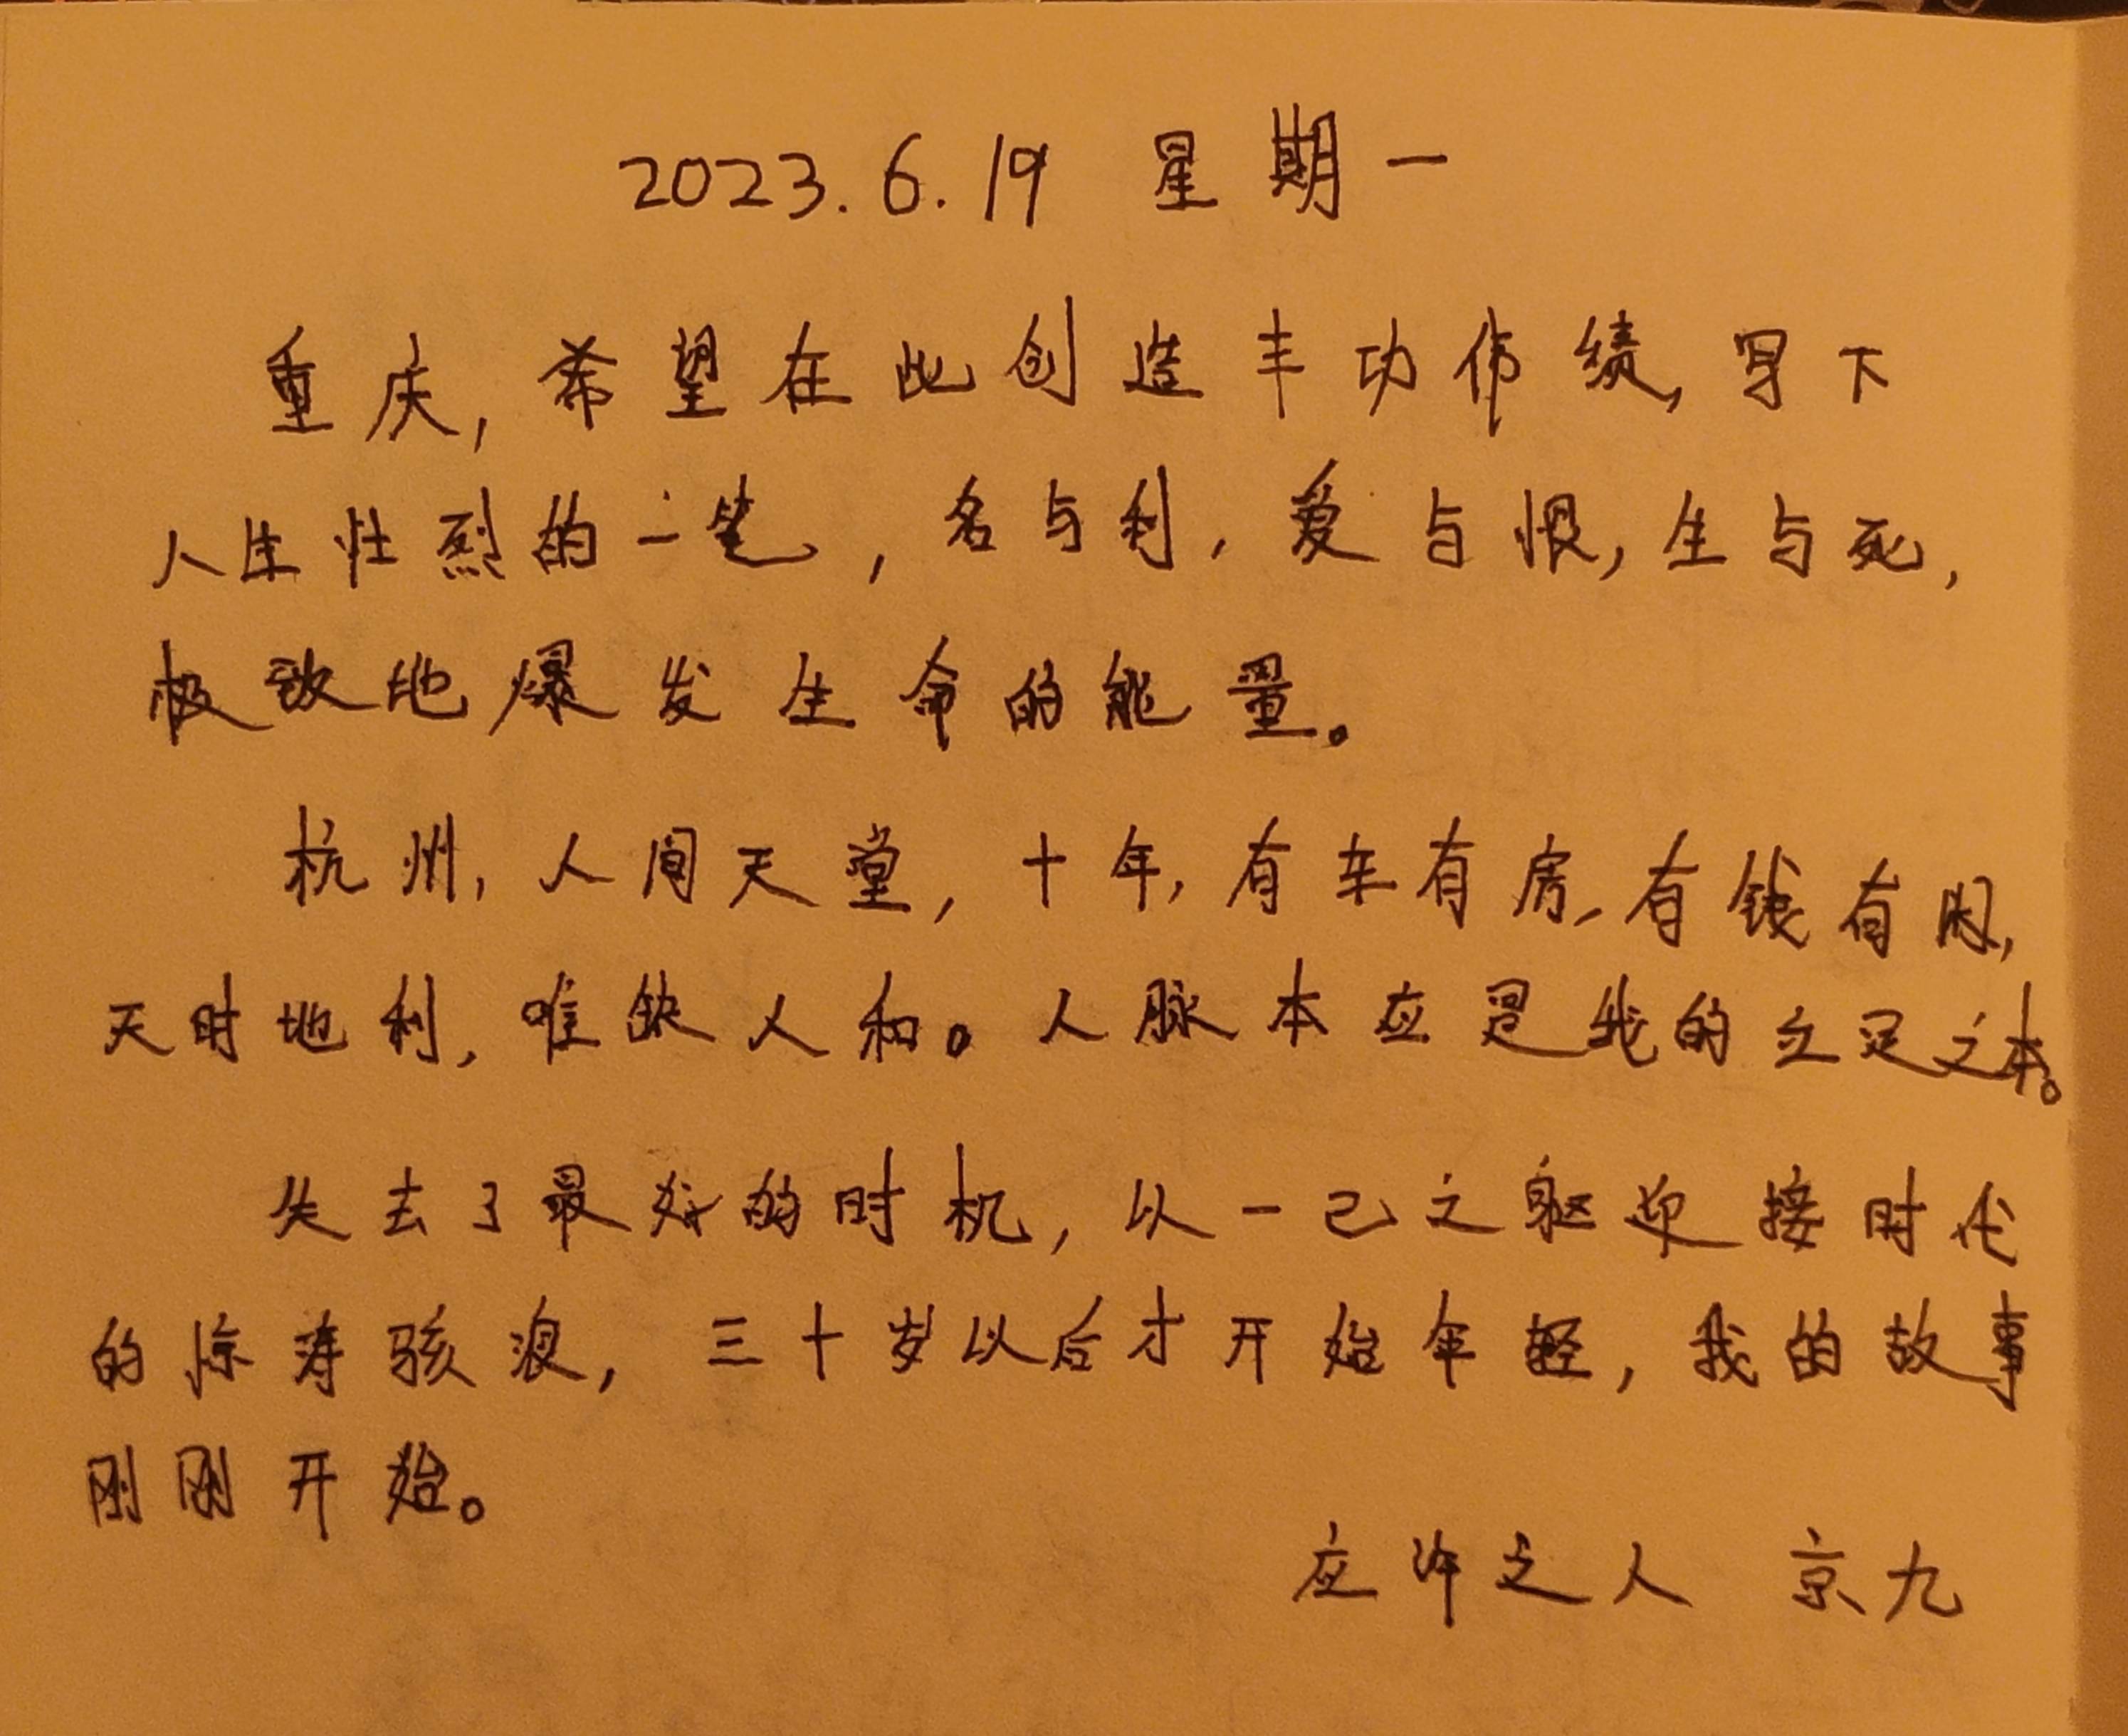 2023.6.19 星期一
重庆,希望在此创造丰功伟绩,写下
人生壮烈的一笔,名与利,爱与恨,生与死,
极致地爆发生命的能量。
杭州,人间天堂,十年,有车有房,有钱有闲,
天时地利,唯缺人和。人脉本应是我的立足之本。
失去了最好的时机,以一己之躯迎接时代
的惊涛骇浪,三十岁以后才开始年轻,我的故事
刚刚开始。
应许之人 京九